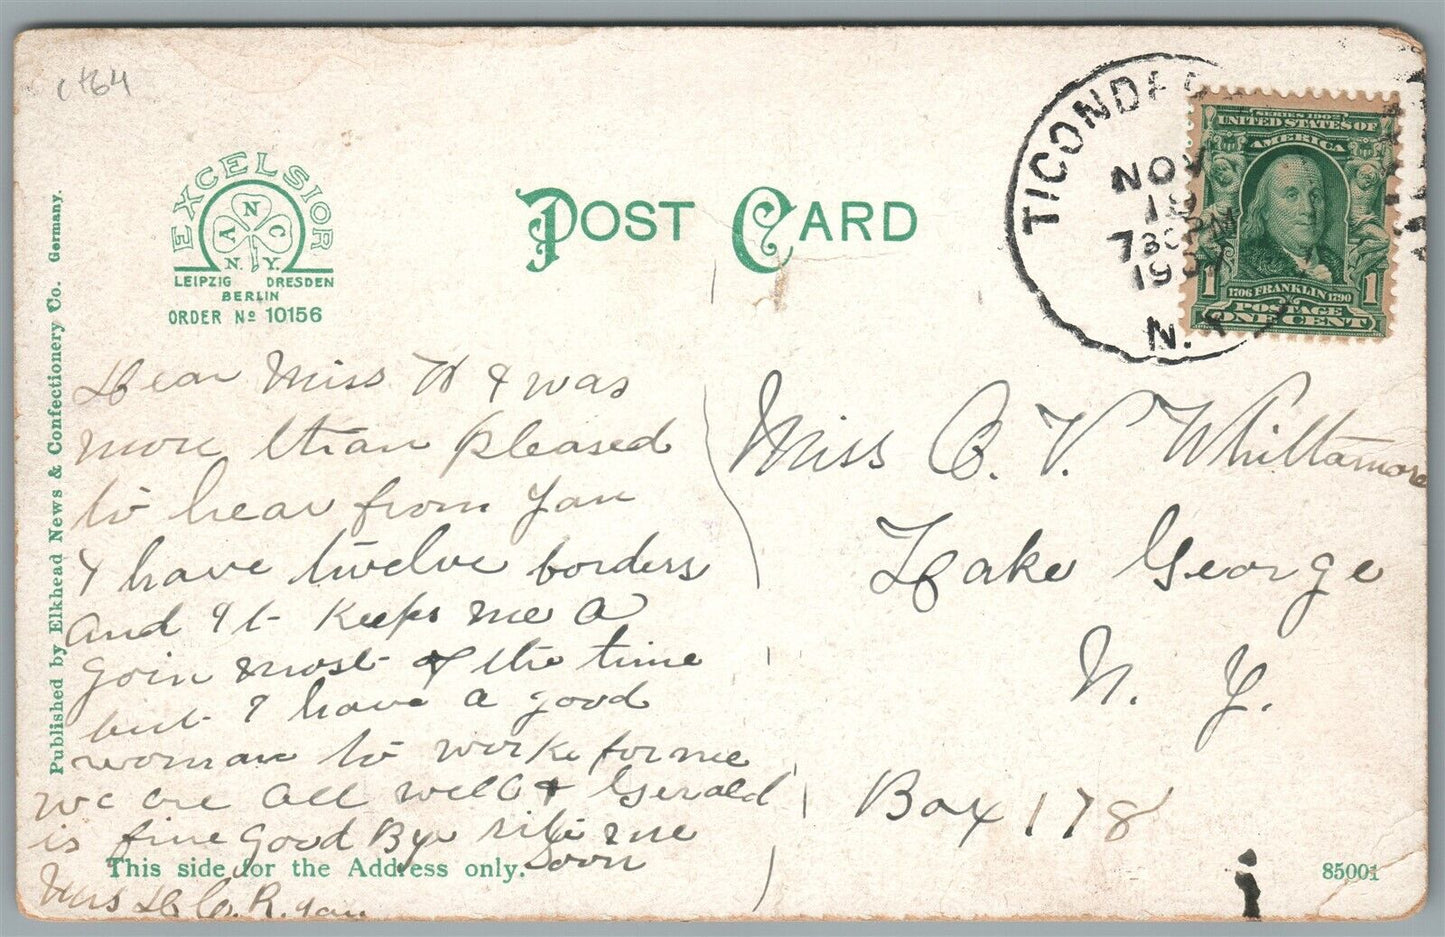 c464
EXCELSIOR
A N C
N. Y.
LEIPZIG DRESDEN
BERLIN
ORDER No 10156
Published by Elkhead News & Confectionery Co. Germany.
POST CARD
TICONDE
NOV
19
730PM
1907
N. Y
SERIES 1902
UNITED STATES OF
AMERICA
1706 FRANKLIN 1790
1 1
POSTAGE
ONE CENT
Dear Miss W I was
more than pleased
to hear from You
I have twelve borders
and It keeps me a
goin most of the time
but I have a good
woman to worke for me
we are all well & Gerald
is fine Good Bye rite me
Soon
Mrs D C. Ryan
This side for the Address only.
Miss C. V. Whittamore
Lake George
N. Y.
Box 178
85001